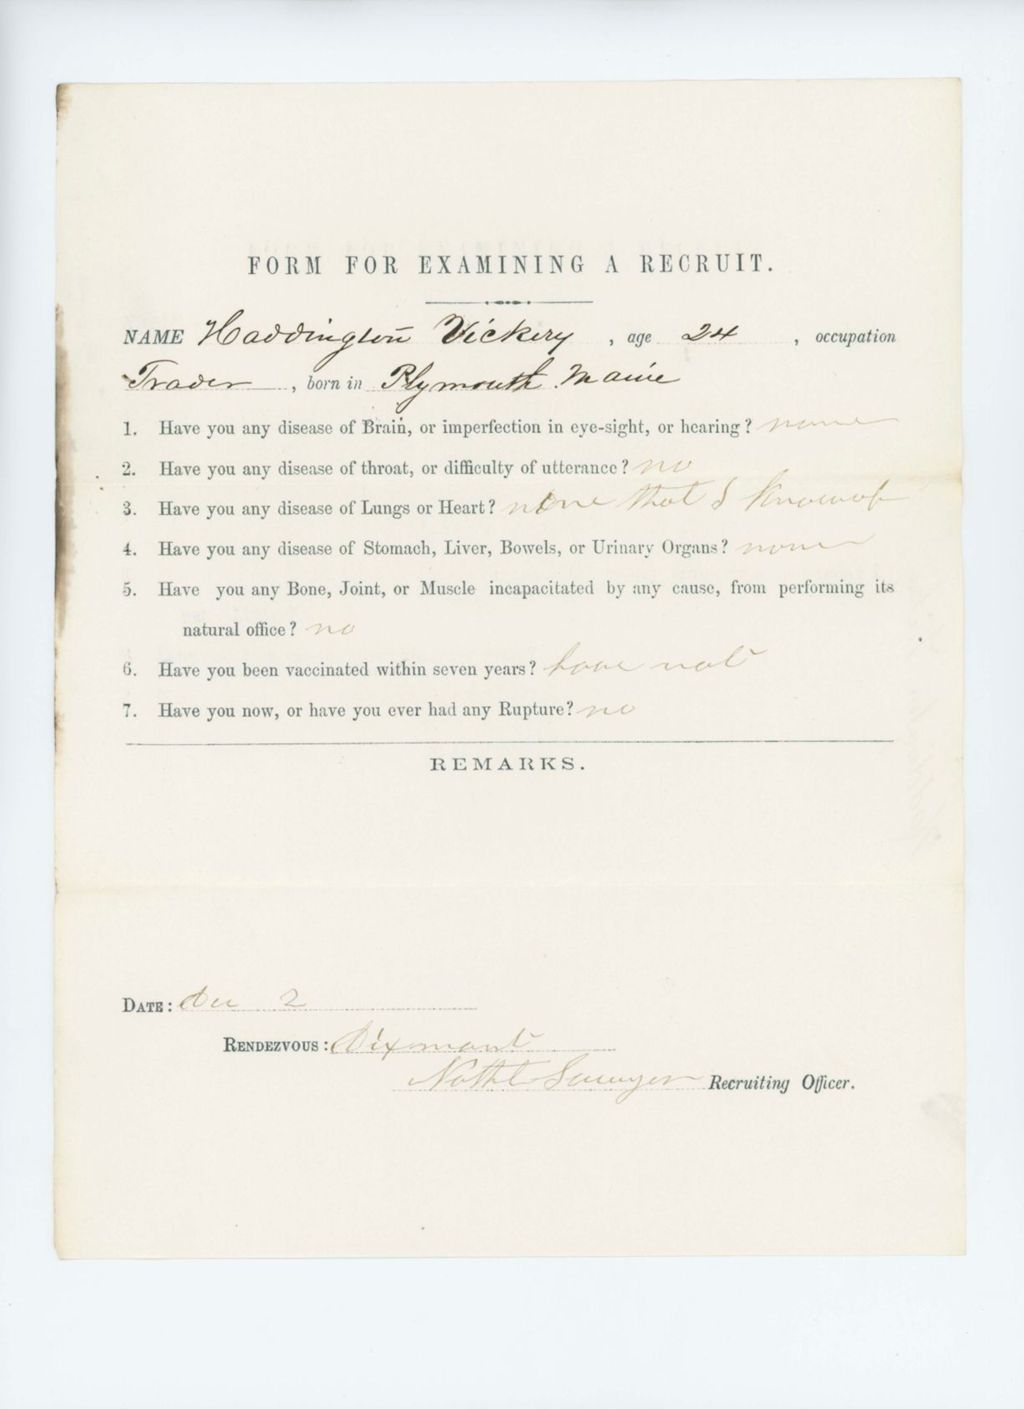 FORM FOR EXAMINING A RECRUIT.
NAME Haddington Vickery , age 24 , occupation
Trader , born in Plymouth Maine
1. Have you any disease of Brain, or imperfection in eye-sight, or hearing? none
2. Have you any disease of throat, or difficulty of utterance? no
3. Have you any disease of Lungs or Heart? none that I know of
4. Have you any disease of Stomach, Liver, Bowels, or Urinary Organs? none
5. Have you any Bone, Joint, or Muscle incapacitated by any cause, from performing its
natural office? no
6. Have you been vaccinated within seven years? have not
7. Have you now, or have you ever had any Rupture? no
REMARKS.
DATE: Dec 2
RENDEZVOUS: Dixmont
Nathl Sawyer Recruiting Officer.